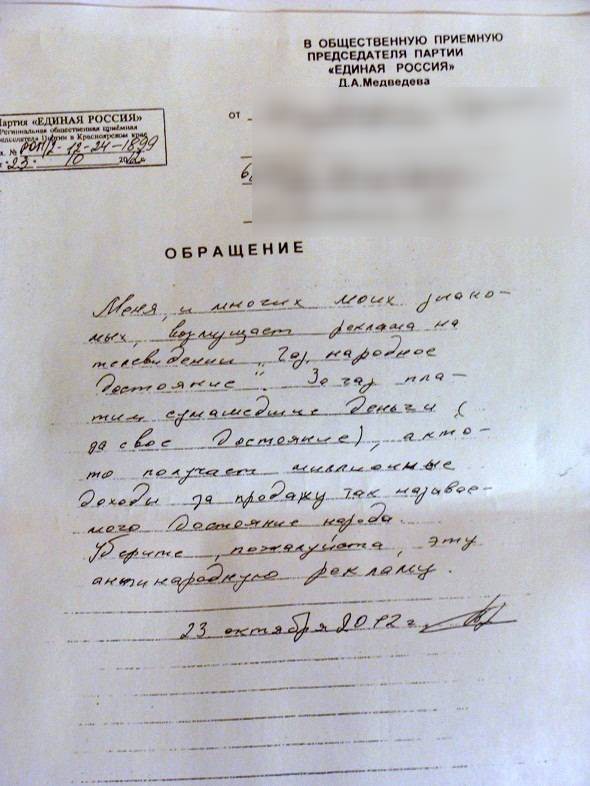 В ОБЩЕСТВЕННУЮ ПРИЕМНУЮ
ПРЕДСЕДАТЕЛЯ ПАРТИИ
«ЕДИНАЯ РОССИЯ»
Д.А.Медведева
Партия «ЕДИНАЯ РОССИЯ»
Региональная общественная приёмная
Председателя Партии в Красноярском крае
23 10 2012
от
6
ОБРАЩЕНИЕ
Меня, и многих моих знако-
мых, возмущает реклама на
телевидении „Газ, народное
достояние“. За газ пла-
тим сумашедшие деньги (
за свое достояние), а кто-
то получает миллионные
доходы за продажу так называе-
мого достояние народа.
Уберите, пожалуйста, эту
антинародную рекламу.
23 октября 2012 г